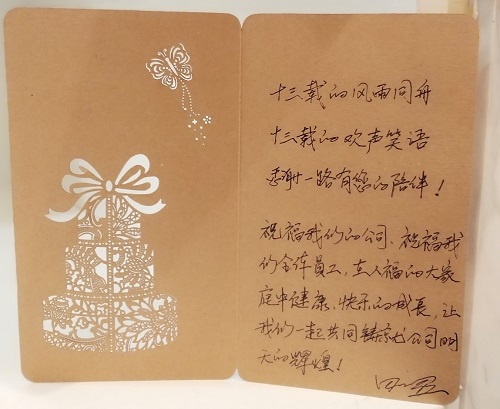 十三载的风雨同舟
十三载的欢声笑语
感谢一路有您的陪伴！
祝福我们的公司、祝福我
们全体员工,在人福的大家
庭中健康、快乐的成长，让
我们一起共同铸就公司明
天的辉煌！